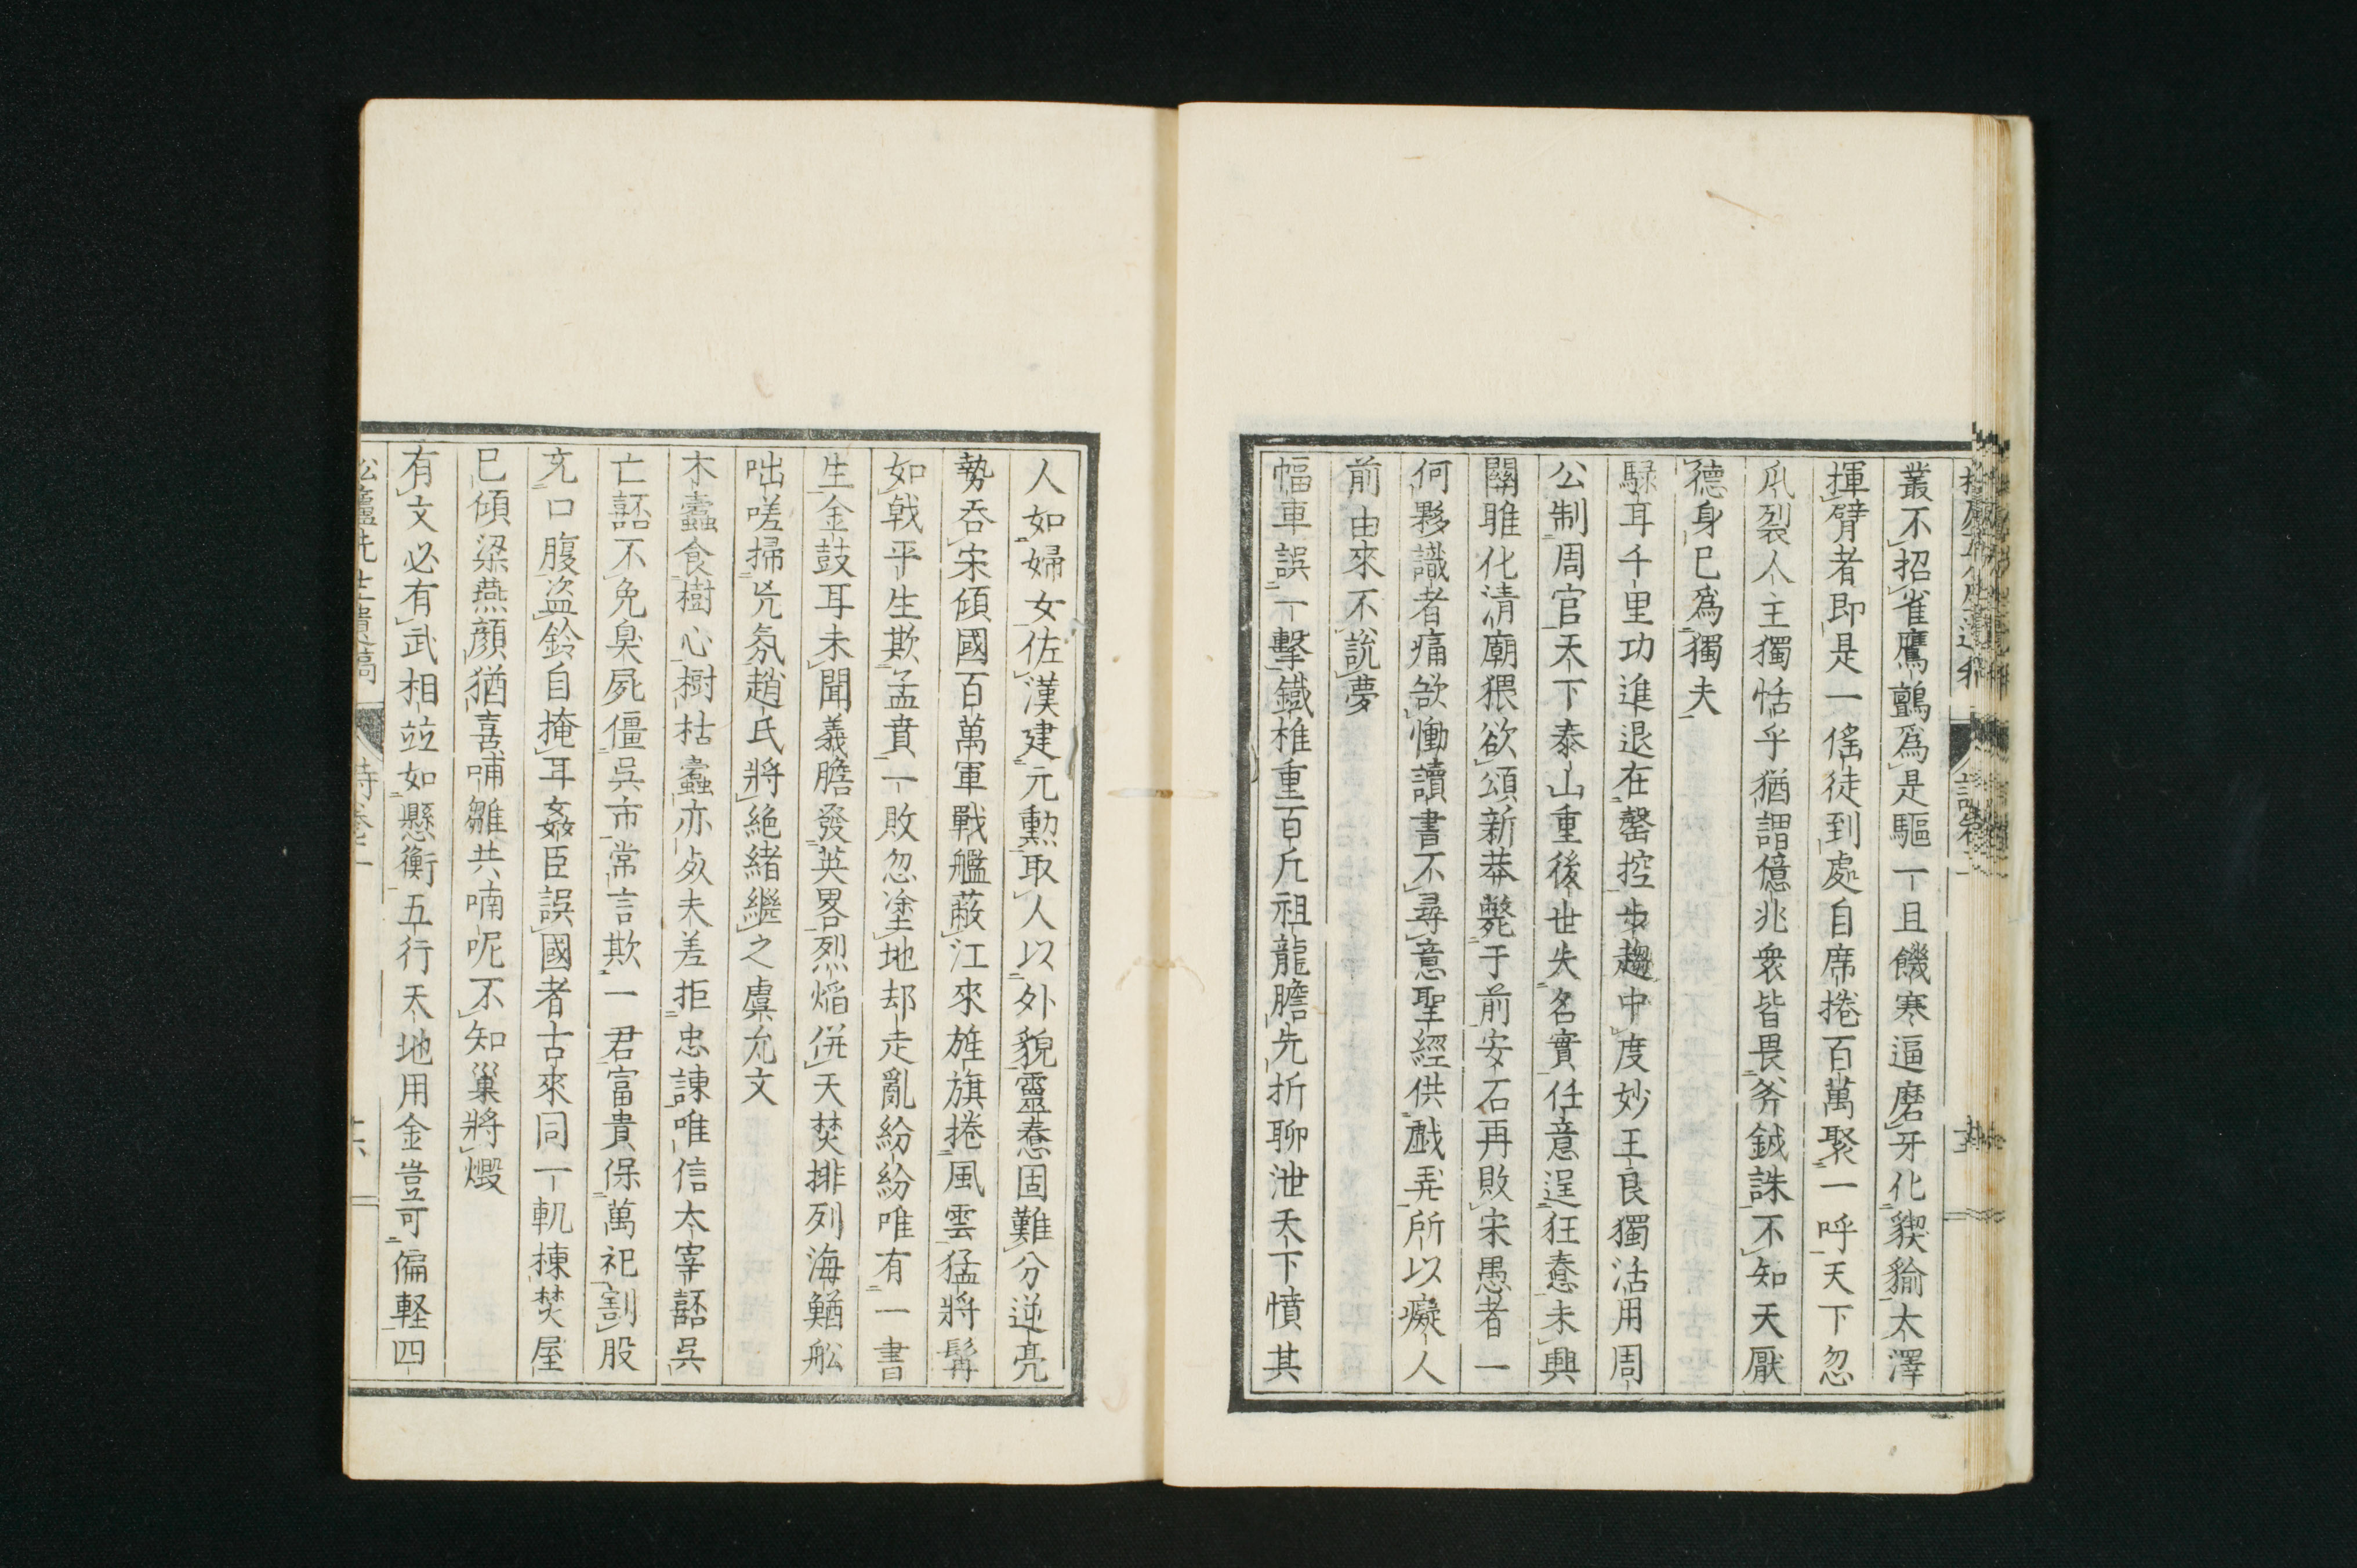 叢不招雀鷹鸇爲是驅一旦饑寒逼磨牙化貏貐太澤
揮臂者即是一傜徒到處自席捲百萬聚一呼天下忽
瓜裂人主獨恬乎猶謂億兆衆皆畏斧鉞誅不知天厭
德身已爲獨夫
騄耳千里功進退在罄控步趨中度妙王良獨活用周
公制周官天下泰山重後世失名實任意逞狂惷未興
關雎化清廟猥欲頌新莽斃于前安石再敗宋愚者一
何夥識者痛欲慟讀書不尋意聖經供戲弄所以癡人
前由來不說夢
幅車誤一擊鐵椎重百斤祖龍膽先折聊泄天下憤其
人如婦女佐漢建元勲取人以外貌靈惷固難分逆亮
勢吞宋傾國百萬軍戰艦蔽江來旌旗捲風雲猛將髯
如戟平生欺孟賁一敗忽塗地却走亂紛紛唯有一書
生金鼓耳未聞義膽發英畧烈焔併天焚排列海鰌舩
咄嗟掃兇氛趙氏將絶緒繼之虞允文
木蠹食樹心樹枯蠹亦歺夫差拒忠諫唯信太宰嚭吳
亡嚭不免臭屍僵吳市常言欺一君富貴保萬祀割股
充口腹盗鈴自掩耳姦臣誤國者古來同一軌棟焚屋
已傾梁燕顔猶喜哺雛共喃呢不知巢將燬
有文必有武相竝如懸衡五行天地用金豈可偏軽四
松廬先生遺稿 詩卷一 十六